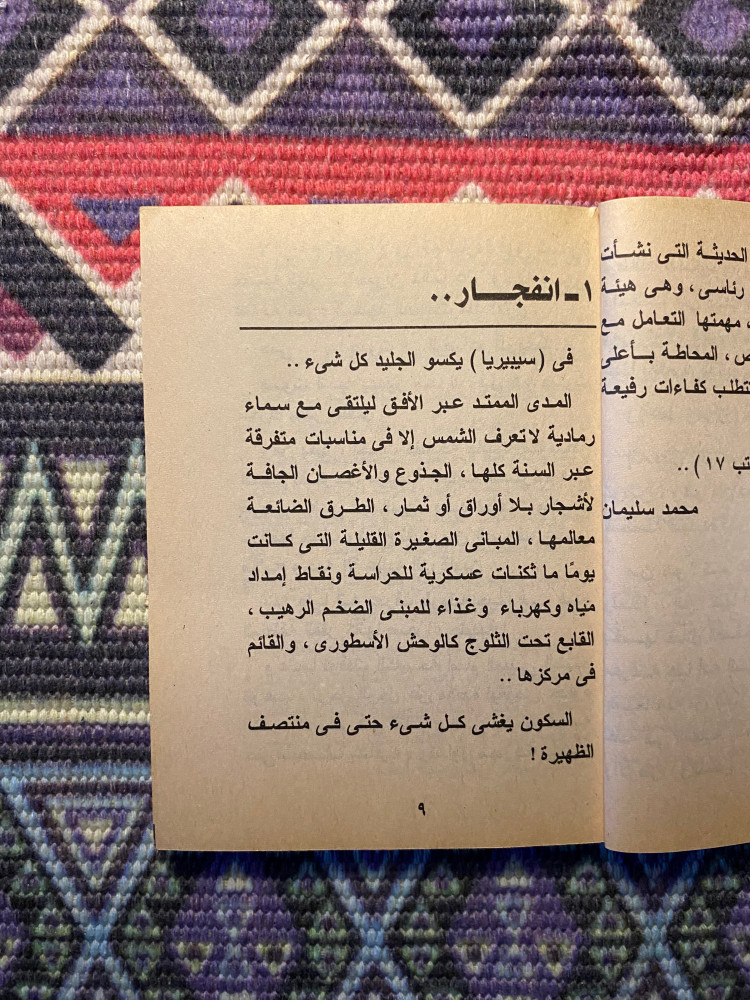 الحديثة التى نشأت
رئاسى، وهى هيئة
، مهمتها التعامل مع
المحاطة بأعلى
كفاءات رفيعة
١٧) ..
محمد سليمان
١ ـ انفجار ..
فى (سيبيريا) يكسو الجليد كل شىء ..
المدى الممتد عبر الأفق ليلتقى مع سماء
رمادية لا تعرف الشمس إلا فى مناسبات متفرقة
عبر السنة كلها ، الجذوع والأغصان الجافة
لأشجار بلا أوراق أو ثمار ، الطرق الضائعة
معالمها ، المبانى الصغيرة القليلة التى كانت
يومًا ما ثكنات عسكرية للحراسة ونقاط إمداد
مياه وكهرباء وغذاء للمبنى الضخم الرهيب ،
القابع تحت الثلوج كالوحش الأسطورى ، والقائم
فى مركزها ..
السكون يغشى كل شىء حتى فى منتصف
الظهيرة !
٩